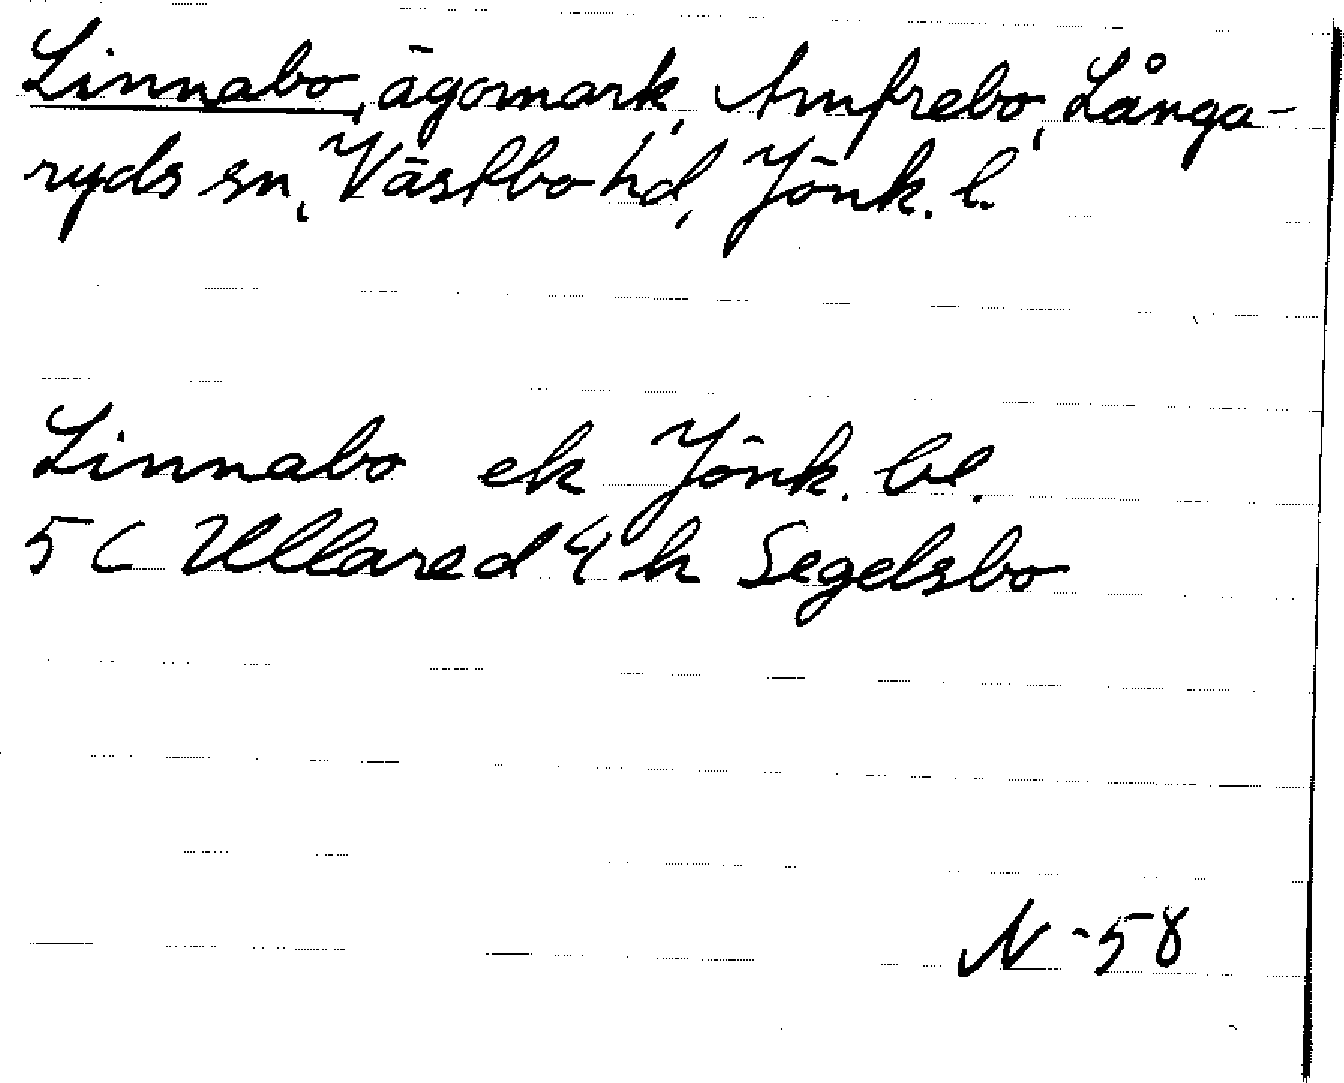 Linnabo, ägomark, Arnfrebo, Långa-
ryds sn, Västbo hd, Jönk. l.
Linnabo ek Jönk. bl.
5C Ullared 4 h Segelsbo
N -58